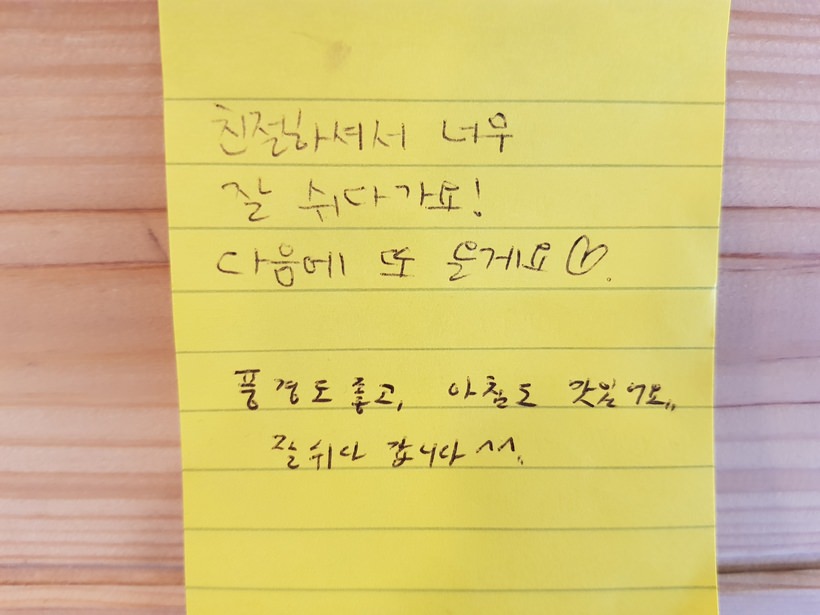 친절하셔서 너무
잘 쉬다가요!
다음에 또 올게요♡.
풍경도 좋고, 아침도 맛있어요,,
잘 쉬다 갑니다 ^^.